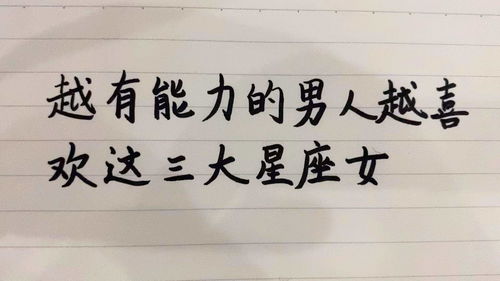 越有能力的男人越喜
欢这三大星座女